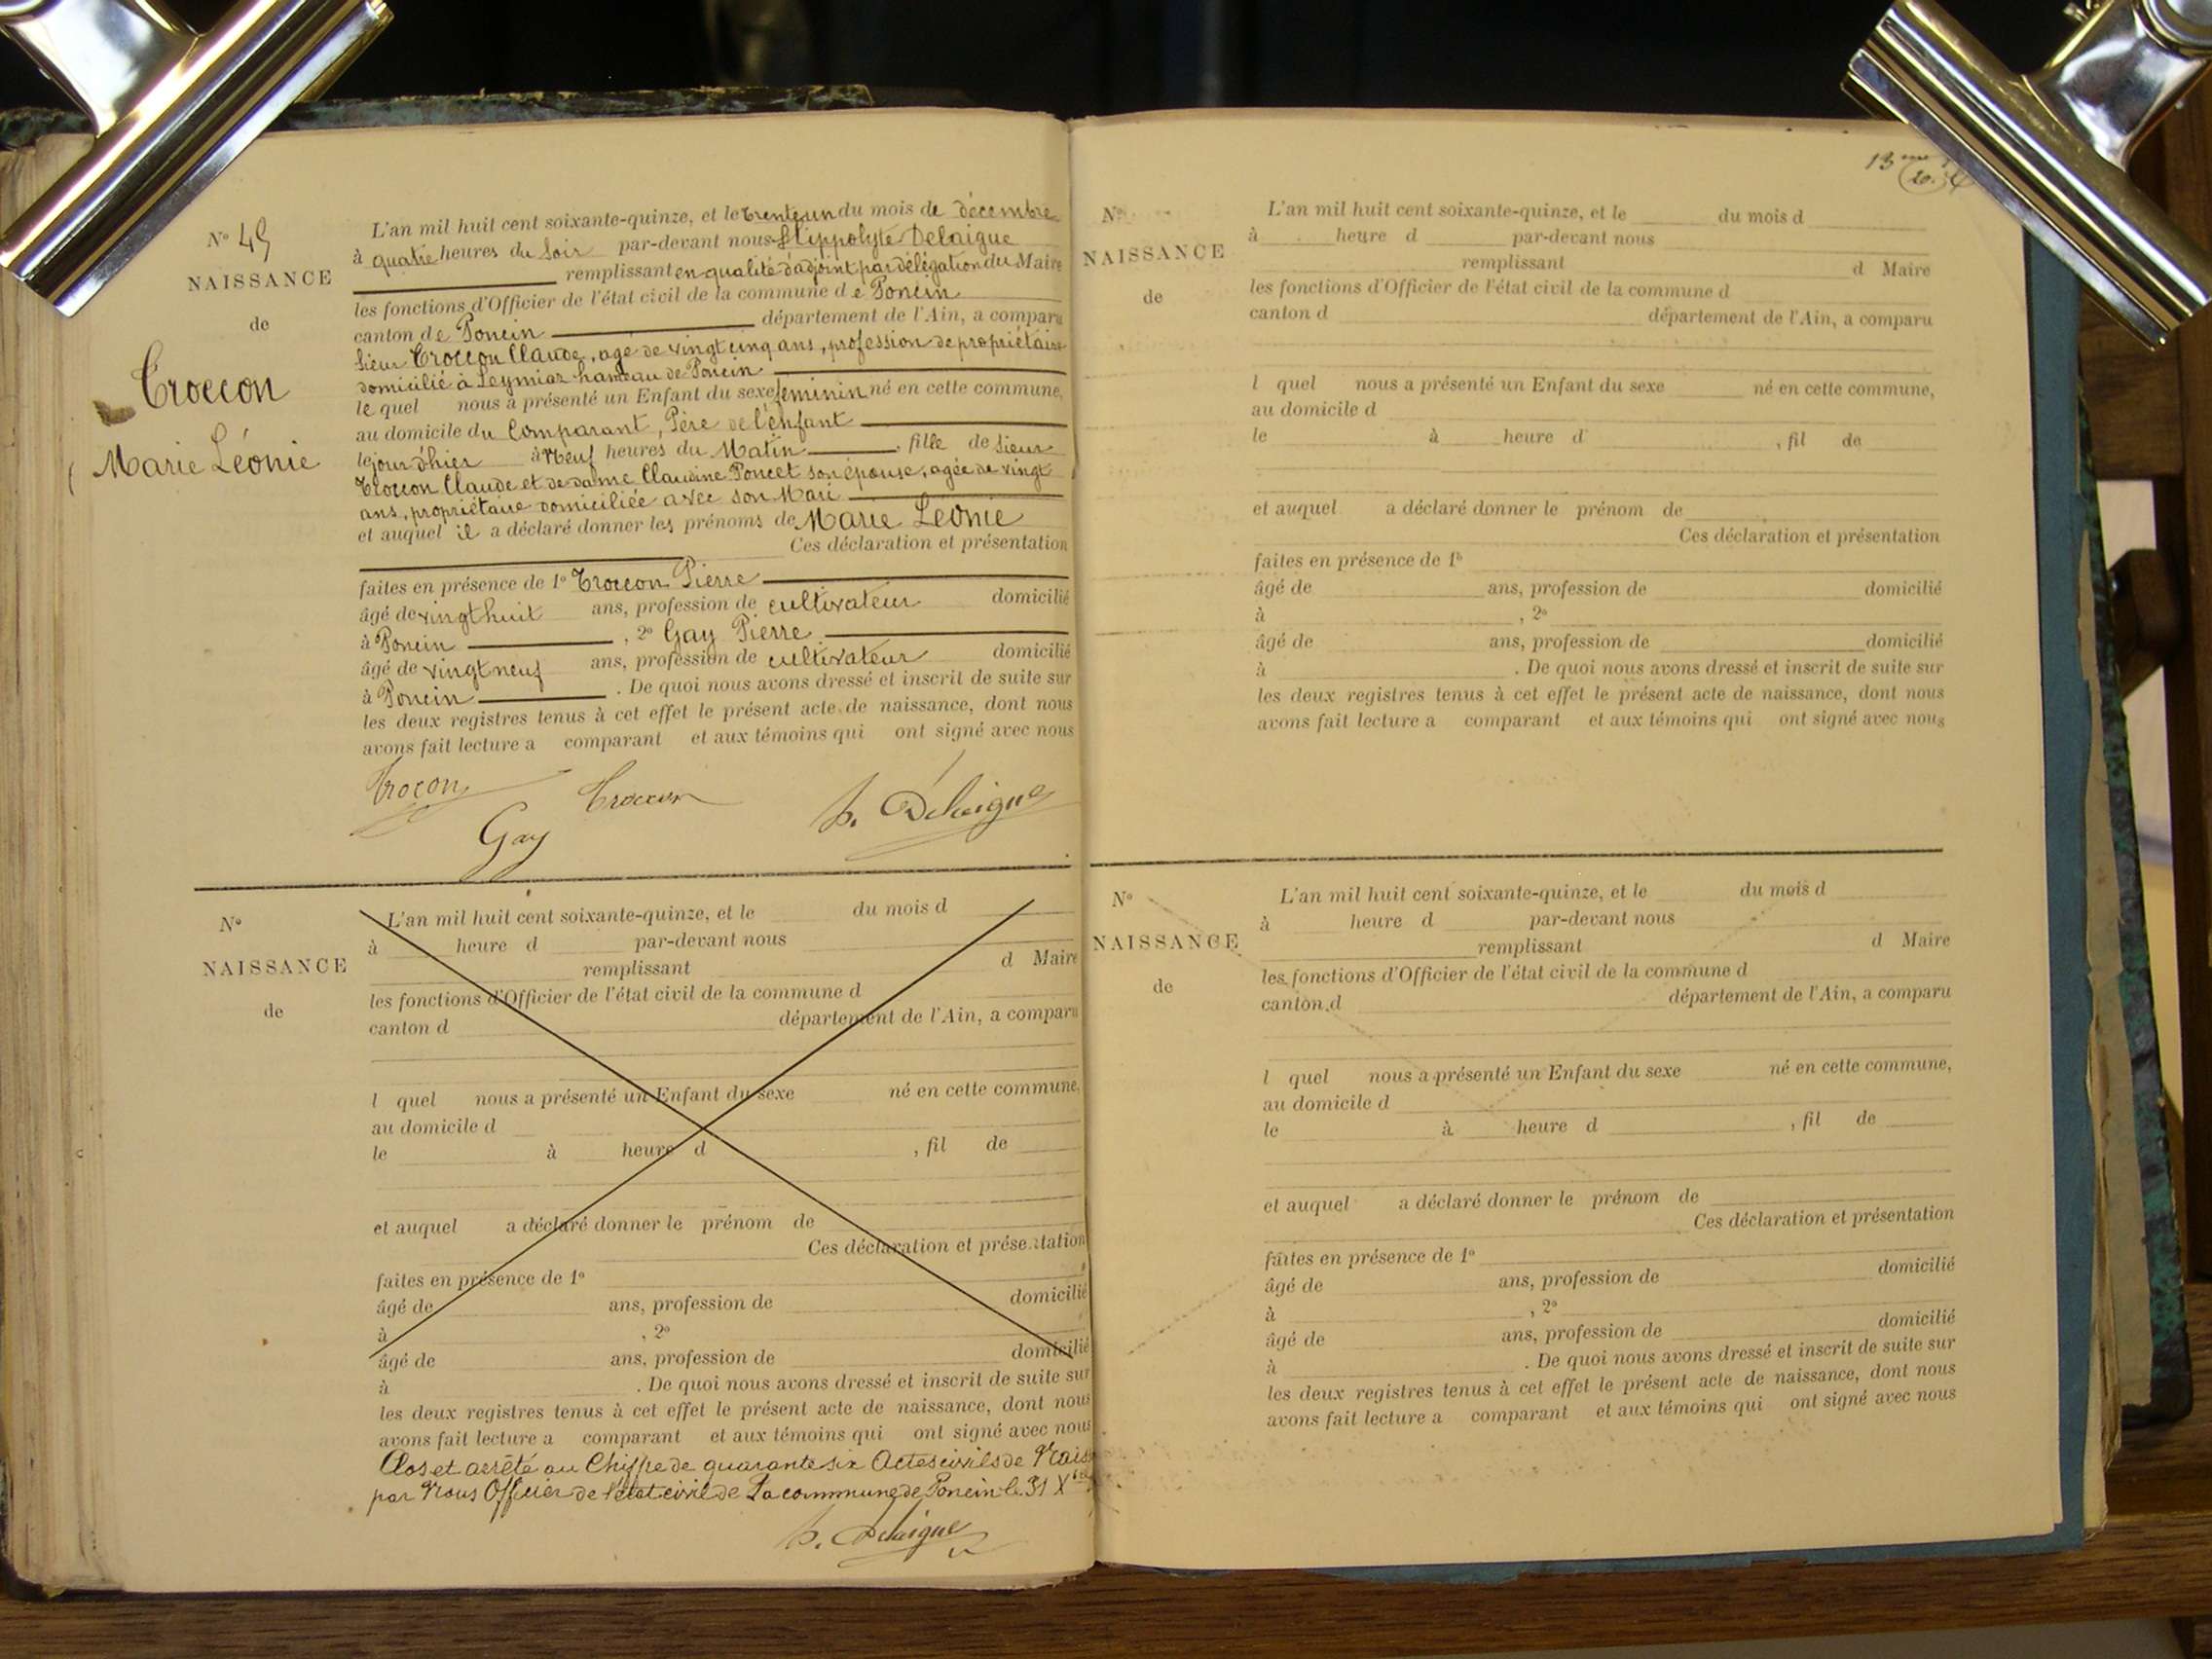 N° 49
NAISSANCE
de
Troccon
Marie Léonie
L'an mil huit cent soixante-quinze, et le trente un du mois de décembre
à quatre heures du soir par-devant nous Hippolyte Delaigue
remplissant en qualité d'adjoint par délégation du Maire
les fonctions d'Officier de l'état civil de la commune de Poncin
canton de Poncin département de l'Ain, a comparu
sieur Troccon Claude, agé de vingt cinq ans, profession de propriétaire
domicilié à Leymiaz hameau de Poncin
le quel nous a présenté un Enfant du sexe féminin né en cette commune,
au domicile du Comparant, Père de l'enfant
le jour d'hier à Neuf heures du Matin, fille de sieur
Troccon Claude et de dame Claudine Poncet son épouse, agée de vingt
ans, propriétaire domiciliée avec son Mari
et auquel il a déclaré donner les prénoms de Marie Léonie
Ces déclaration et présentation
faites en présence de 1° Troccon Pierre
âgé de vingt huit ans, profession de cultivateur domicilié
à Poncin, 2° Gay Pierre
âgé de vingt neuf ans, profession de cultivateur domicilié
à Poncin. De quoi nous avons dressé et inscrit de suite sur
les deux registres tenus à cet effet le présent acte de naissance, dont nous
avons fait lecture a comparant et aux témoins qui ont signé avec nous
Trocon Troccon h. Delaigue
Gay
N°
NAISSANCE
de
L'an mil huit cent soixante-quinze, et le du mois d
à heure d par-devant nous
remplissant d Maire
les fonctions d'Officier de l'état civil de la commune d
canton d département de l'Ain, a comparu
l quel nous a présenté un Enfant du sexe né en cette commune,
au domicile d
le à heure d , fil de
et auquel a déclaré donner le prénom de
Ces déclaration et présentation
faites en présence de 1°
âgé de ans, profession de domicilié
à , 2°
âgé de ans, profession de domicilié
à . De quoi nous avons dressé et inscrit de suite sur
les deux registres tenus à cet effet le présent acte de naissance, dont nous
avons fait lecture a comparant et aux témoins qui ont signé avec nous
Clos et arrêté au Chiffre de quarante six Actes civils de
par Nous Officier de l'état civil de La commune de Poncin le 31 X
h. Delaigue
13
N°
NAISSANCE
de
L'an mil huit cent soixante-quinze, et le du mois d
à heure d par-devant nous
remplissant d Maire
les fonctions d'Officier de l'état civil de la commune d
canton d département de l'Ain, a comparu
l quel nous a présenté un Enfant du sexe né en cette commune,
au domicile d
le à heure d , fil de
et auquel a déclaré donner le prénom de
Ces déclaration et présentation
faites en présence de 1°
âgé de ans, profession de domicilié
à , 2°
âgé de ans, profession de domicilié
à . De quoi nous avons dressé et inscrit de suite sur
les deux registres tenus à cet effet le présent acte de naissance, dont nous
avons fait lecture a comparant et aux témoins qui ont signé avec nous
N°
NAISSANCE
de
L'an mil huit cent soixante-quinze, et le du mois d
à heure d par-devant nous
remplissant d Maire
les fonctions d'Officier de l'état civil de la commune d
canton d département de l'Ain, a comparu
l quel nous a présenté un Enfant du sexe né en cette commune,
au domicile d
le à heure d , fil de
et auquel a déclaré donner le prénom de
Ces déclaration et présentation
faites en présence de 1°
âgé de ans, profession de domicilié
à , 2°
âgé de ans, profession de domicilié
à . De quoi nous avons dressé et inscrit de suite sur
les deux registres tenus à cet effet le présent acte de naissance, dont nous
avons fait lecture a comparant et aux témoins qui ont signé avec nous